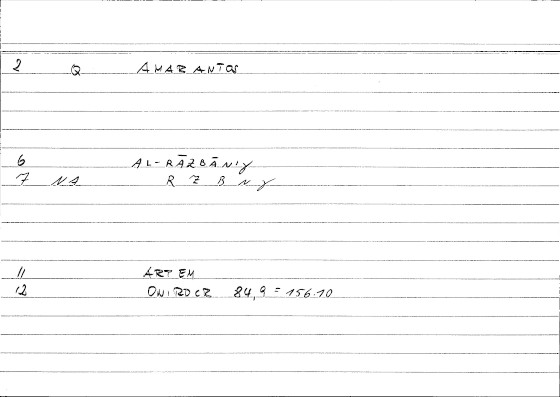 2 Q AMARANTOS
6 AL-RĀZBĀNIY
7 NA R Z B N Y
11 ARTEM
12 ONIROCR 84,9 = 156.10